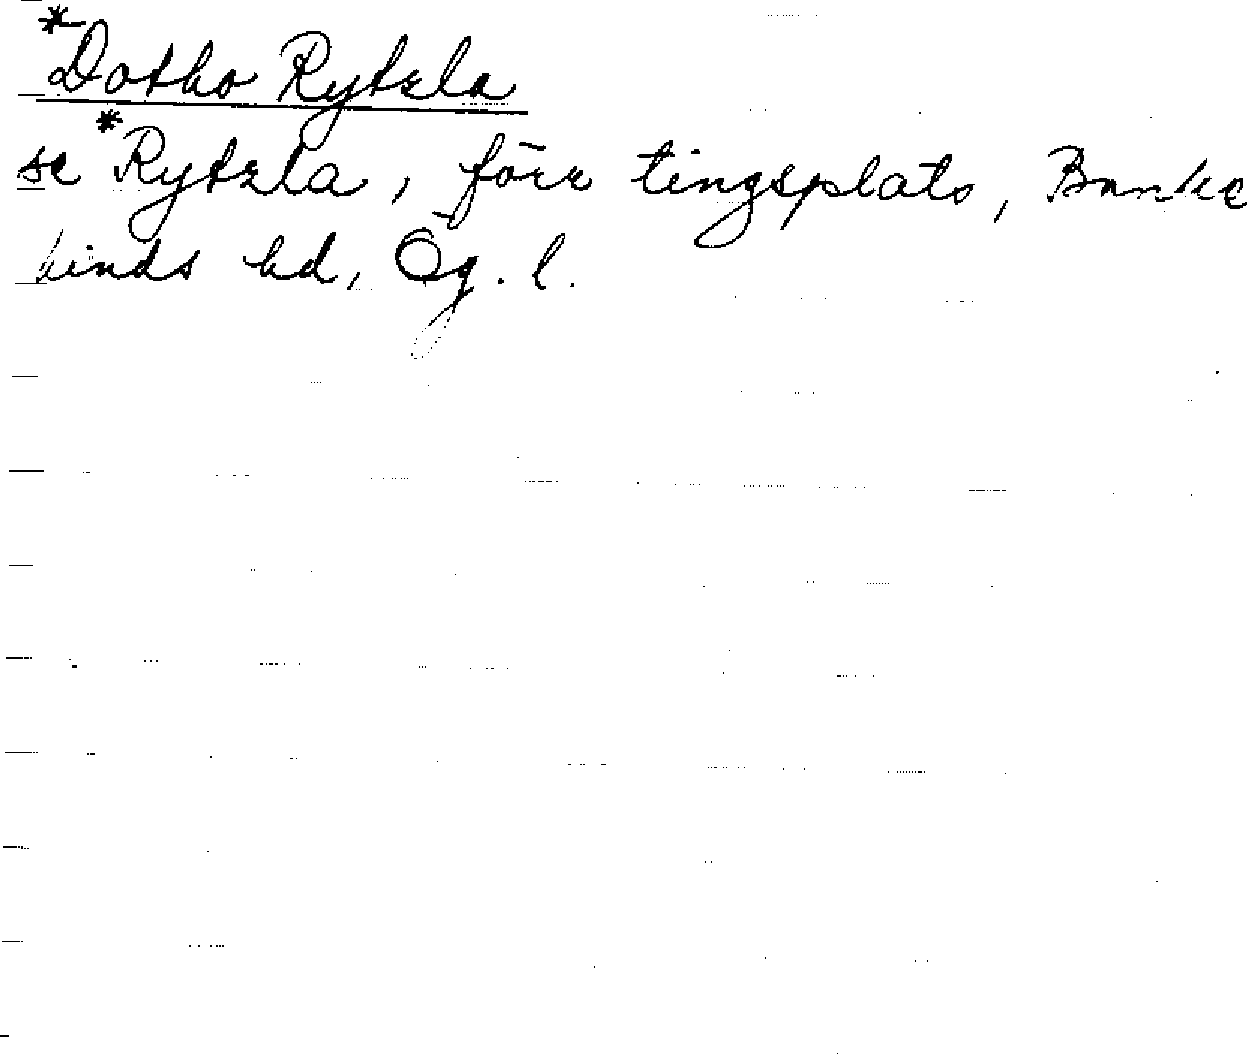 *Dotho Rytzla
se *Rytzla, förr tingsplats, Banke
kinds hd, Ög. l.